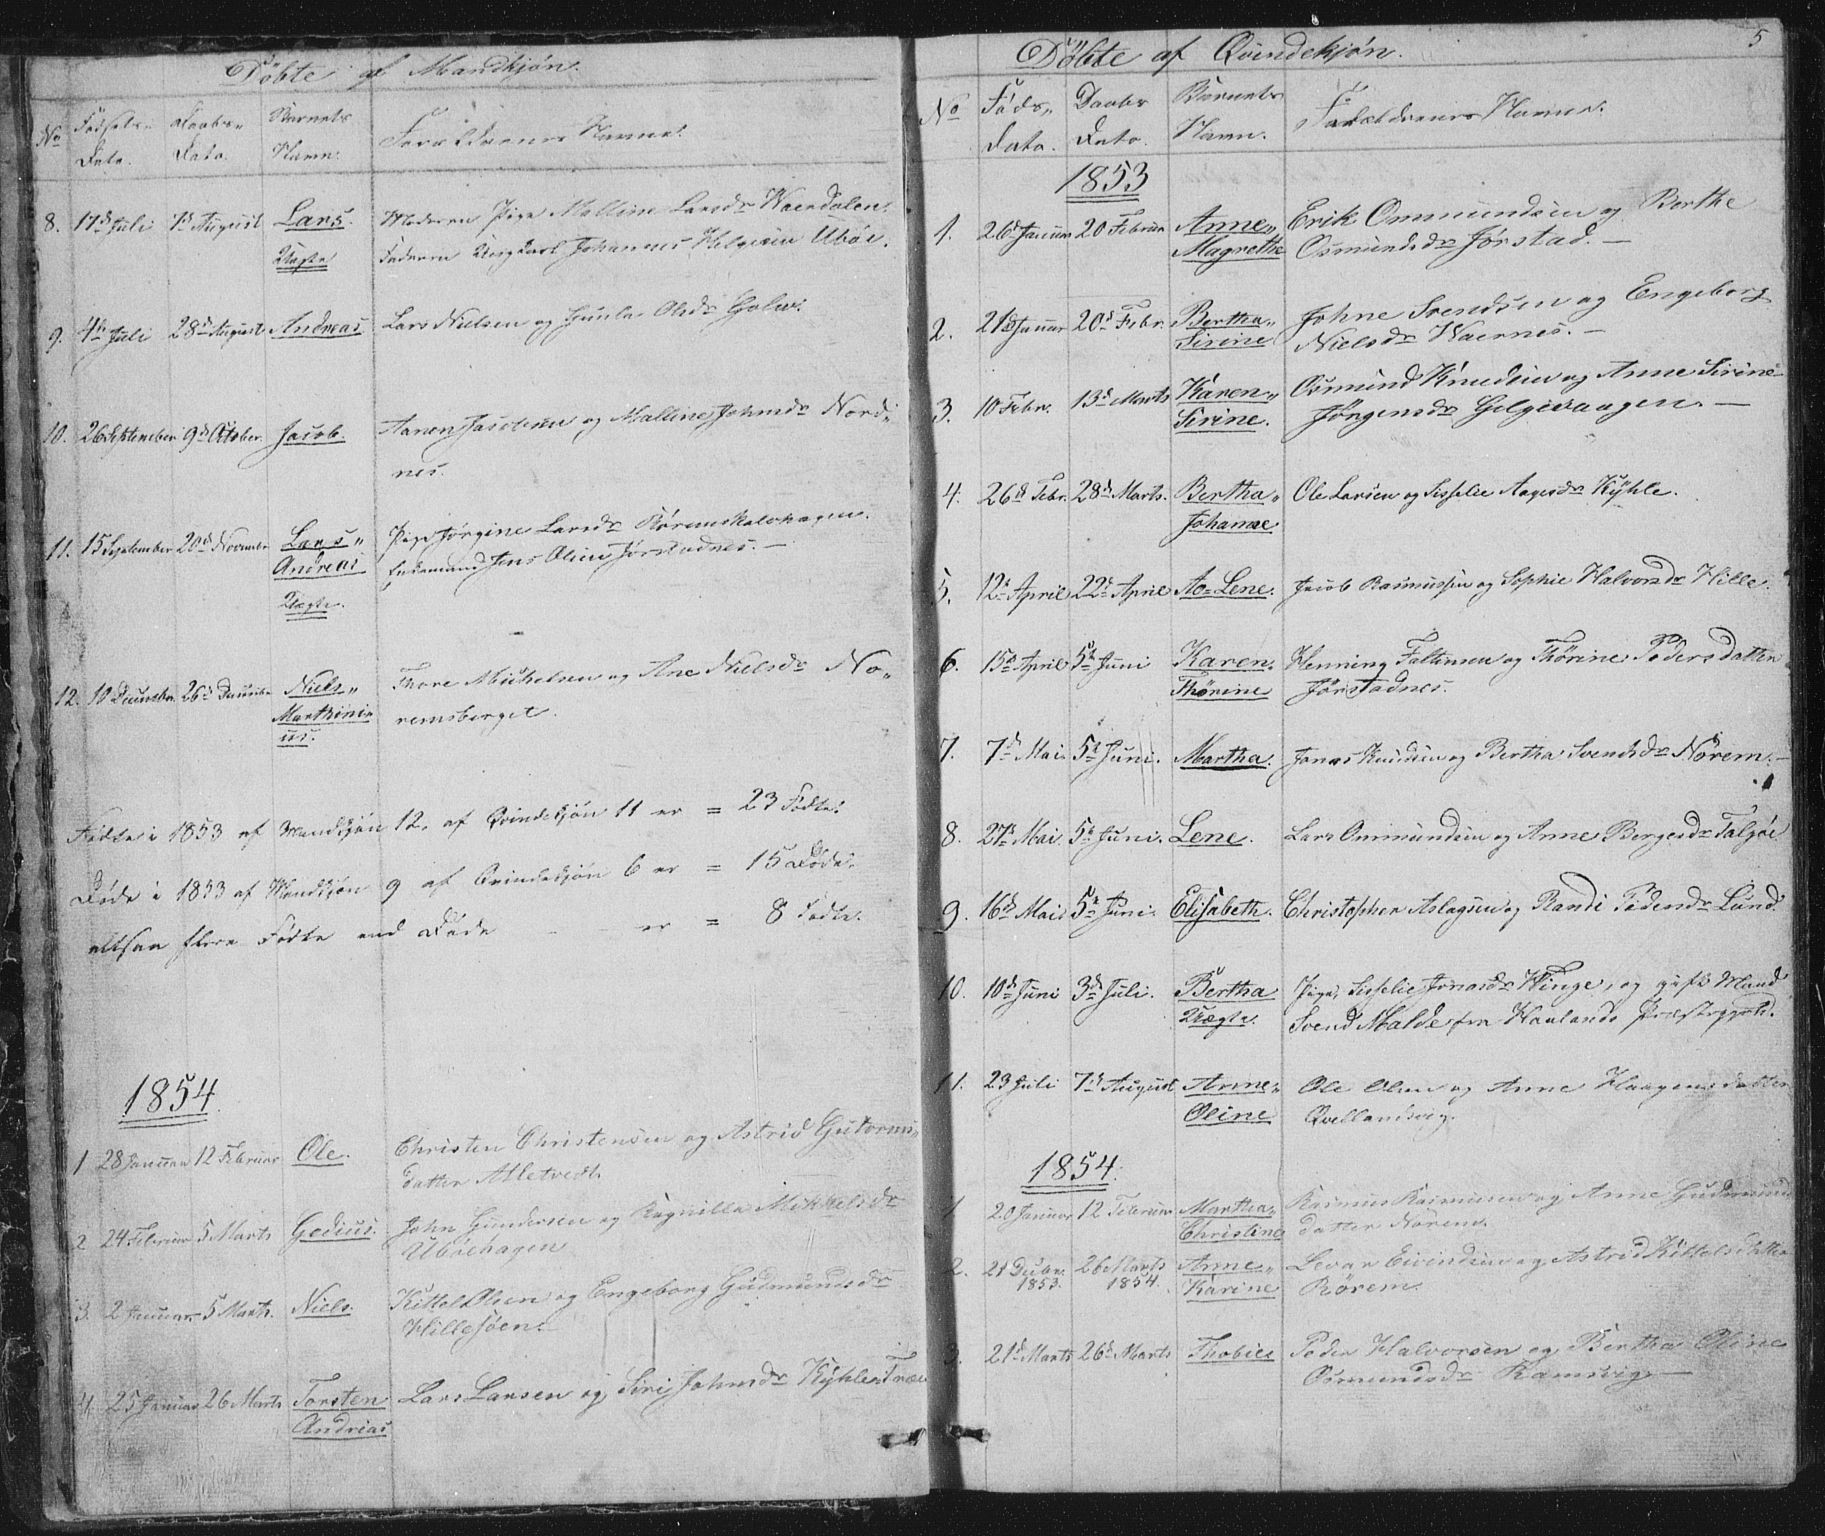 Döbte af Mandkjön.
No Fødsels- Daabs- Barnets Forældrenes Navne.
Dato. Dato. Navn.
8. 17de Juli 7de August Lars. Moderen Pige Malline Larsdr Waerdalen.
Uægte Faderen Ungkarl Johannes Helgesen Uböe.
9. 4de Juli 28de August Andreas Lars Nielsen og Gunla Olsdr
10. 26 September 9de October. Jacob. Aanon Jacobsen og Malline Johnsdr Nord„
nes.
11. 15 September 20de November Lars„ Pige Jørgine Larsdr
Andreas Jens Olsen Jørstadnes. —
Uægte.
12. 10 December 26de December Niels„ Thore Michelsen og Ane Nielsdr No„
Marthini„ remsberget.
us.
Fødte i 1853 af Mandkjön 12, af Qvindekjön 11 er = 23 Fødte.
Døde i 1853 af Mandkjön 9 af Qvindekjön 6 er = 15 Døde.
altsaa flere Fødte end Døde er = 8 Fødte.
1854
1 28 Januar 12 Februar Ole. Christen Christensen og Astrid Gutorms„
datter Alletvedt.
2 24 Februar 5 Marts Gedius. John Gundersen og Ragnilla Mikkelsdr
Uböehagen
3. 2 Januar 5 Marts. Niels. Kittel Olsen og Engeborg Gudmundsdr
Hillesöen.
4. 25 Januar 26 Marts Torsten Lars Larsen og Siri Johnsdr Kyhle
Andreas
5
Döbte af Qvindekjön.
No Føds„ Daabs Barnets Forældrenes Navne.
Dato. Dato. Navn.
1853
1. 26de Januar 20 Februar Anne„ Erik Ommundsen og Berthe
Magrethe Osmundsdr Jörstad. —
2. 21de Januar 20de Febr. Bertha„ Johne Svendsen og Engeborg
Sirine Nielsdr Waernes. —
3. 10 Febr. 13de Marts Karen„ Osmund Knudsen og Anne Sirine
Sirine. Jörgensdr Helgevaagen. —
4. 26de Febr. 28de Marts. Bertha„ Ole Larsen og Sisselie Aagesdr Kyhle.
Johanne
5. 12te April 22de April Ao-Lene. Jacob Rasmussen og Sophie Halvorsdr Hille.
6. 15de April 5te Juni Karen„ Henning Faltinsen og Thörine Pedersdatter
Thörine Jörstadnes.
7. 7de Mai 5te Juni. Martha. Jonas Knudsen og Bertha Svendsdr Nörem. —
8. 27de Mai. 5te Juni. Lene. Lars Ommundsen og Anne Bergesdr Talgöe
9. 16de Mai 5te Juni. Elisabeth. Christopher Aslagsen og Randi Pedersdr Lund.
10. 10de Juni 3de Juli. Bertha Pige, Sisselie Jonasdr Winge, og gift Mand
Uægte. Svend Malde fra Haalands Præstegjeld.
11. 23 Juli 7de August Anne„ Ole Olsen og Anne Haagensdatter
Oline Qvellandsvig.
1854.
1 20 Januar 12 Februar Martha„ Rasmus Rasmussen og Anne Gudmunds
Christine datter Nörem.
2. 21 Decbr. 26 Marts Anne„ Levar Eivindsen og Astrid Kittelsdatter
1853. 1854. Karine Rörem.
3. 21de Marts 26de Marts Thobiee Peder Halvorsen og Bertha Oline
Osmundsdr Ramsvig —